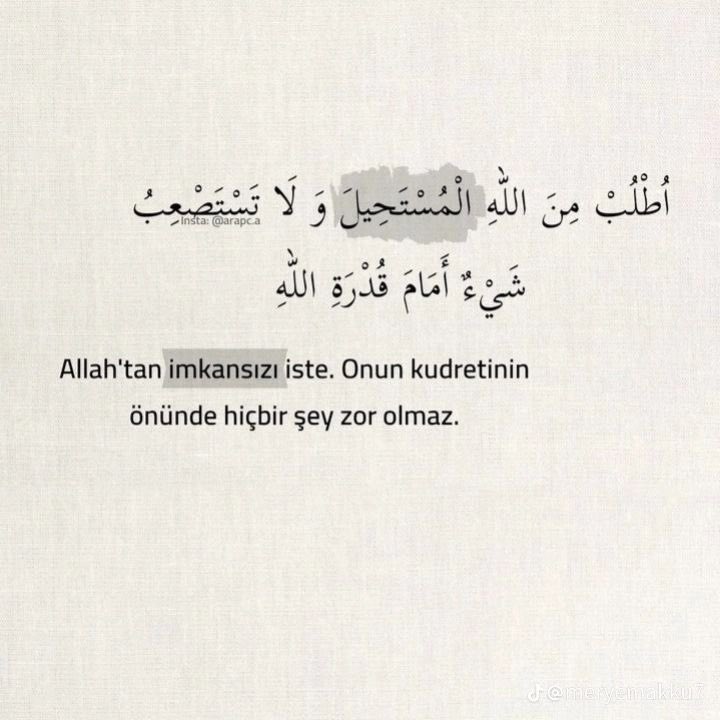 اُطْلُبْ مِنَ اللّٰهِ الْمُسْتَحِيلَ وَ لَا تَسْتَصْعِبُ
Insta: @arapc.a
شَيْءٌ أَمَامَ قُدْرَةِ اللّٰهِ
Allah'tan imkansızı iste. Onun kudretinin
önünde hiçbir şey zor olmaz.
@meryemakku7